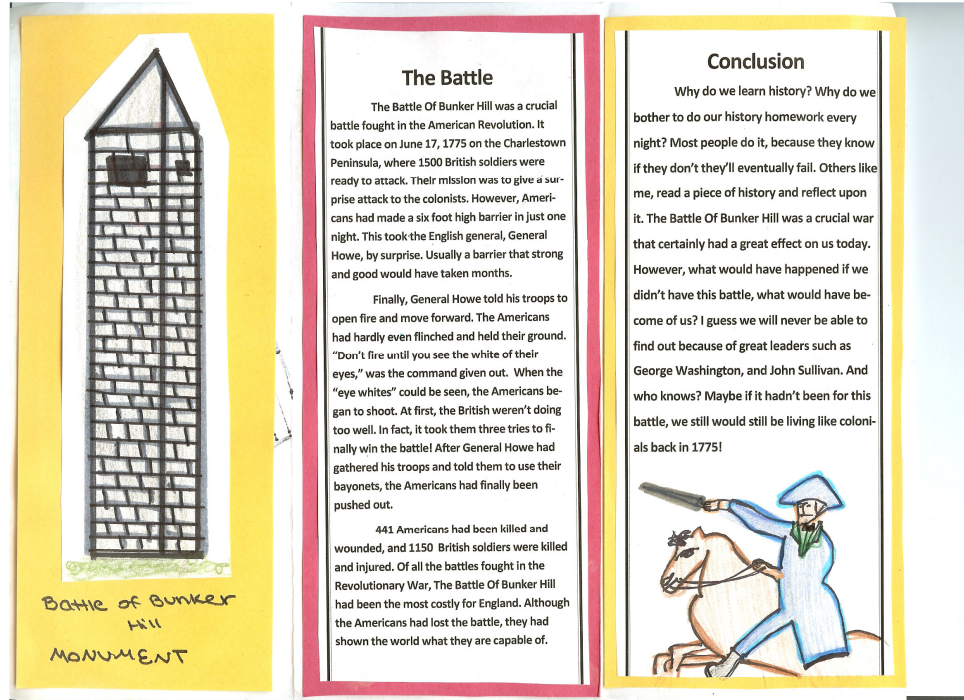 Battle of Bunker
Hill
MONUMENT
The Battle
The Battle Of Bunker Hill was a crucial
battle fought in the American Revolution. It
took place on June 17, 1775 on the Charlestown
Peninsula, where 1500 British soldiers were
ready to attack. Their mission was to give a sur-
prise attack to the colonists. However, Ameri-
cans had made a six foot high barrier in just one
night. This took the English general, General
Howe, by surprise. Usually a barrier that strong
and good would have taken months.
Finally, General Howe told his troops to
open fire and move forward. The Americans
had hardly even flinched and held their ground.
“Don’t fire until you see the white of their
eyes,” was the command given out. When the
“eye whites” could be seen, the Americans be-
gan to shoot. At first, the British weren’t doing
too well. In fact, it took them three tries to fi-
nally win the battle! After General Howe had
gathered his troops and told them to use their
bayonets, the Americans had finally been
pushed out.
441 Americans had been killed and
wounded, and 1150 British soldiers were killed
and injured. Of all the battles fought in the
Revolutionary War, The Battle Of Bunker Hill
had been the most costly for England. Although
the Americans had lost the battle, they had
shown the world what they are capable of.
Conclusion
Why do we learn history? Why do we
bother to do our history homework every
night? Most people do it, because they know
if they don’t they’ll eventually fail. Others like
me, read a piece of history and reflect upon
it. The Battle Of Bunker Hill was a crucial war
that certainly had a great effect on us today.
However, what would have happened if we
didn’t have this battle, what would have be-
come of us? I guess we will never be able to
find out because of great leaders such as
George Washington, and John Sullivan. And
who knows? Maybe if it hadn’t been for this
battle, we still would still be living like coloni-
als back in 1775!